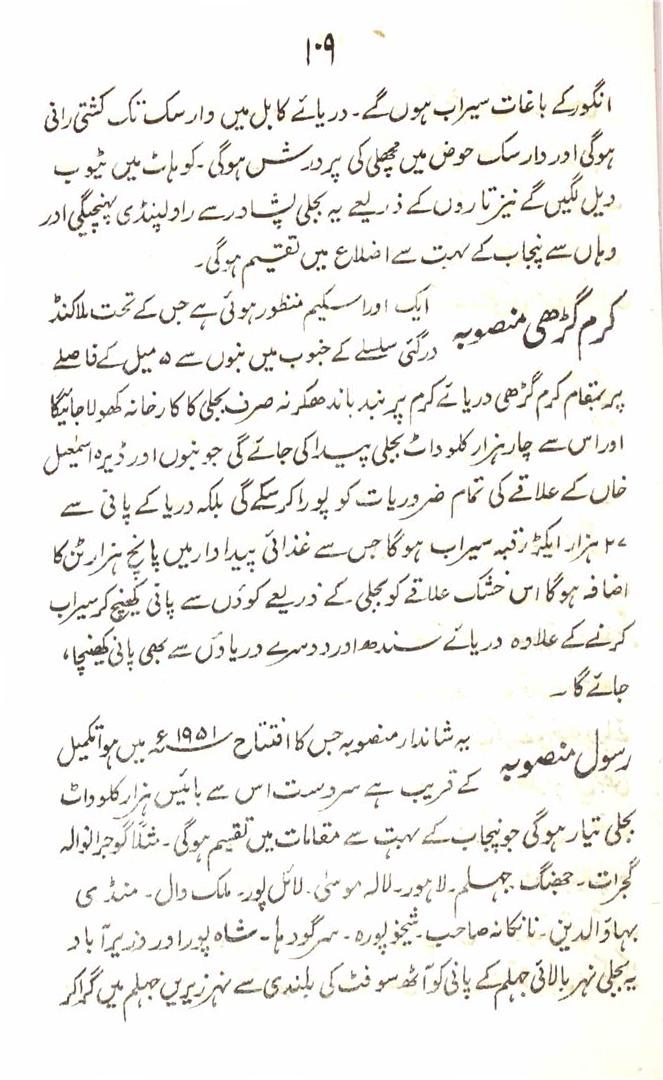 ۱۰۹
انگور کے باغات سیراب ہوں گے۔ دریائے کابل میں وارسک تک کشتی رانی
ہوگی اور وارسک حوض میں مچھلی کی پرورش ہوگی۔ کوہاٹ میں ٹیوب
ویل لگیں گے نیز تاروں کے ذریعے یہ بجلی پشاور سے راولپنڈی پہنچیگی اور
وہاں سے پنجاب کے بہت سے اضلاع میں تقسیم ہوگی۔
کرم گڑھی منصوبہ ایک اور اسکیم منظور ہوئی ہے جس کے تحت ملاکنڈ
درگئی سلسلے کے جنوب میں بنوں سے ۵ میل کے فاصلے
پر بمقام کرم گڑھی دریائے کرم پر بند باندھکر نہ صرف بجلی کا کارخانہ کھولا جائیگا
اور اس سے چار ہزار کلوواٹ بجلی پیدا کی جائے گی جو بنوں اور ڈیرہ اسمٰعیل
خاں کے علاقے کی تمام ضروریات کو پورا کر سکے گی بلکہ دریا کے پانی سے
۲۷ ہزار ایکڑ رقبہ سیراب ہوگا جس سے غذائی پیداوار میں پانچ ہزار ٹن کا
اضافہ ہوگا اس خشک علاقے کو بجلی کے ذریعے کوؤں سے پانی کھینچ کر سیراب
کرنے کے علاوہ دریائے سندھ اور دوسرے دریاؤں سے بھی پانی کھینچا،
جائے گا۔
رسول منصوبہ یہ شاندار منصوبہ جس کا افتتاح ۱۹۵۱ء میں ہوا تکمیل
کے قریب ہے سردست اس سے بائیس ہزار کلوواٹ
بجلی تیار ہوگی جو پنجاب کے بہت سے مقامات میں تقسیم ہوگی۔ مثلاً گوجرانوالہ
گجرات۔ جھنگ جہلم۔ لاہور۔ لالہ موسیٰ۔ لائل پور۔ ملک وال۔ منڈی
بہاؤالدین۔ نانکانہ صاحب۔ شیخوپورہ۔ سرگودہا۔ شاہ پور اور وزیرآباد
یہ بجلی نہر بالائی جہلم کے پانی کو آٹھ سو فٹ کی بلندی سے نہر زیریں جہلم میں گرا کر